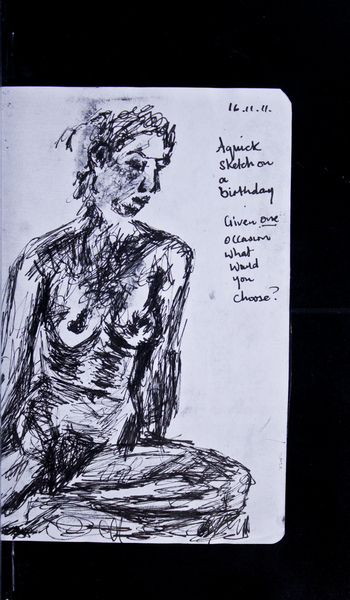 16.11.11.
A quick
sketch on
a
birthday
.
Given one
occasion
what
would
you
choose?